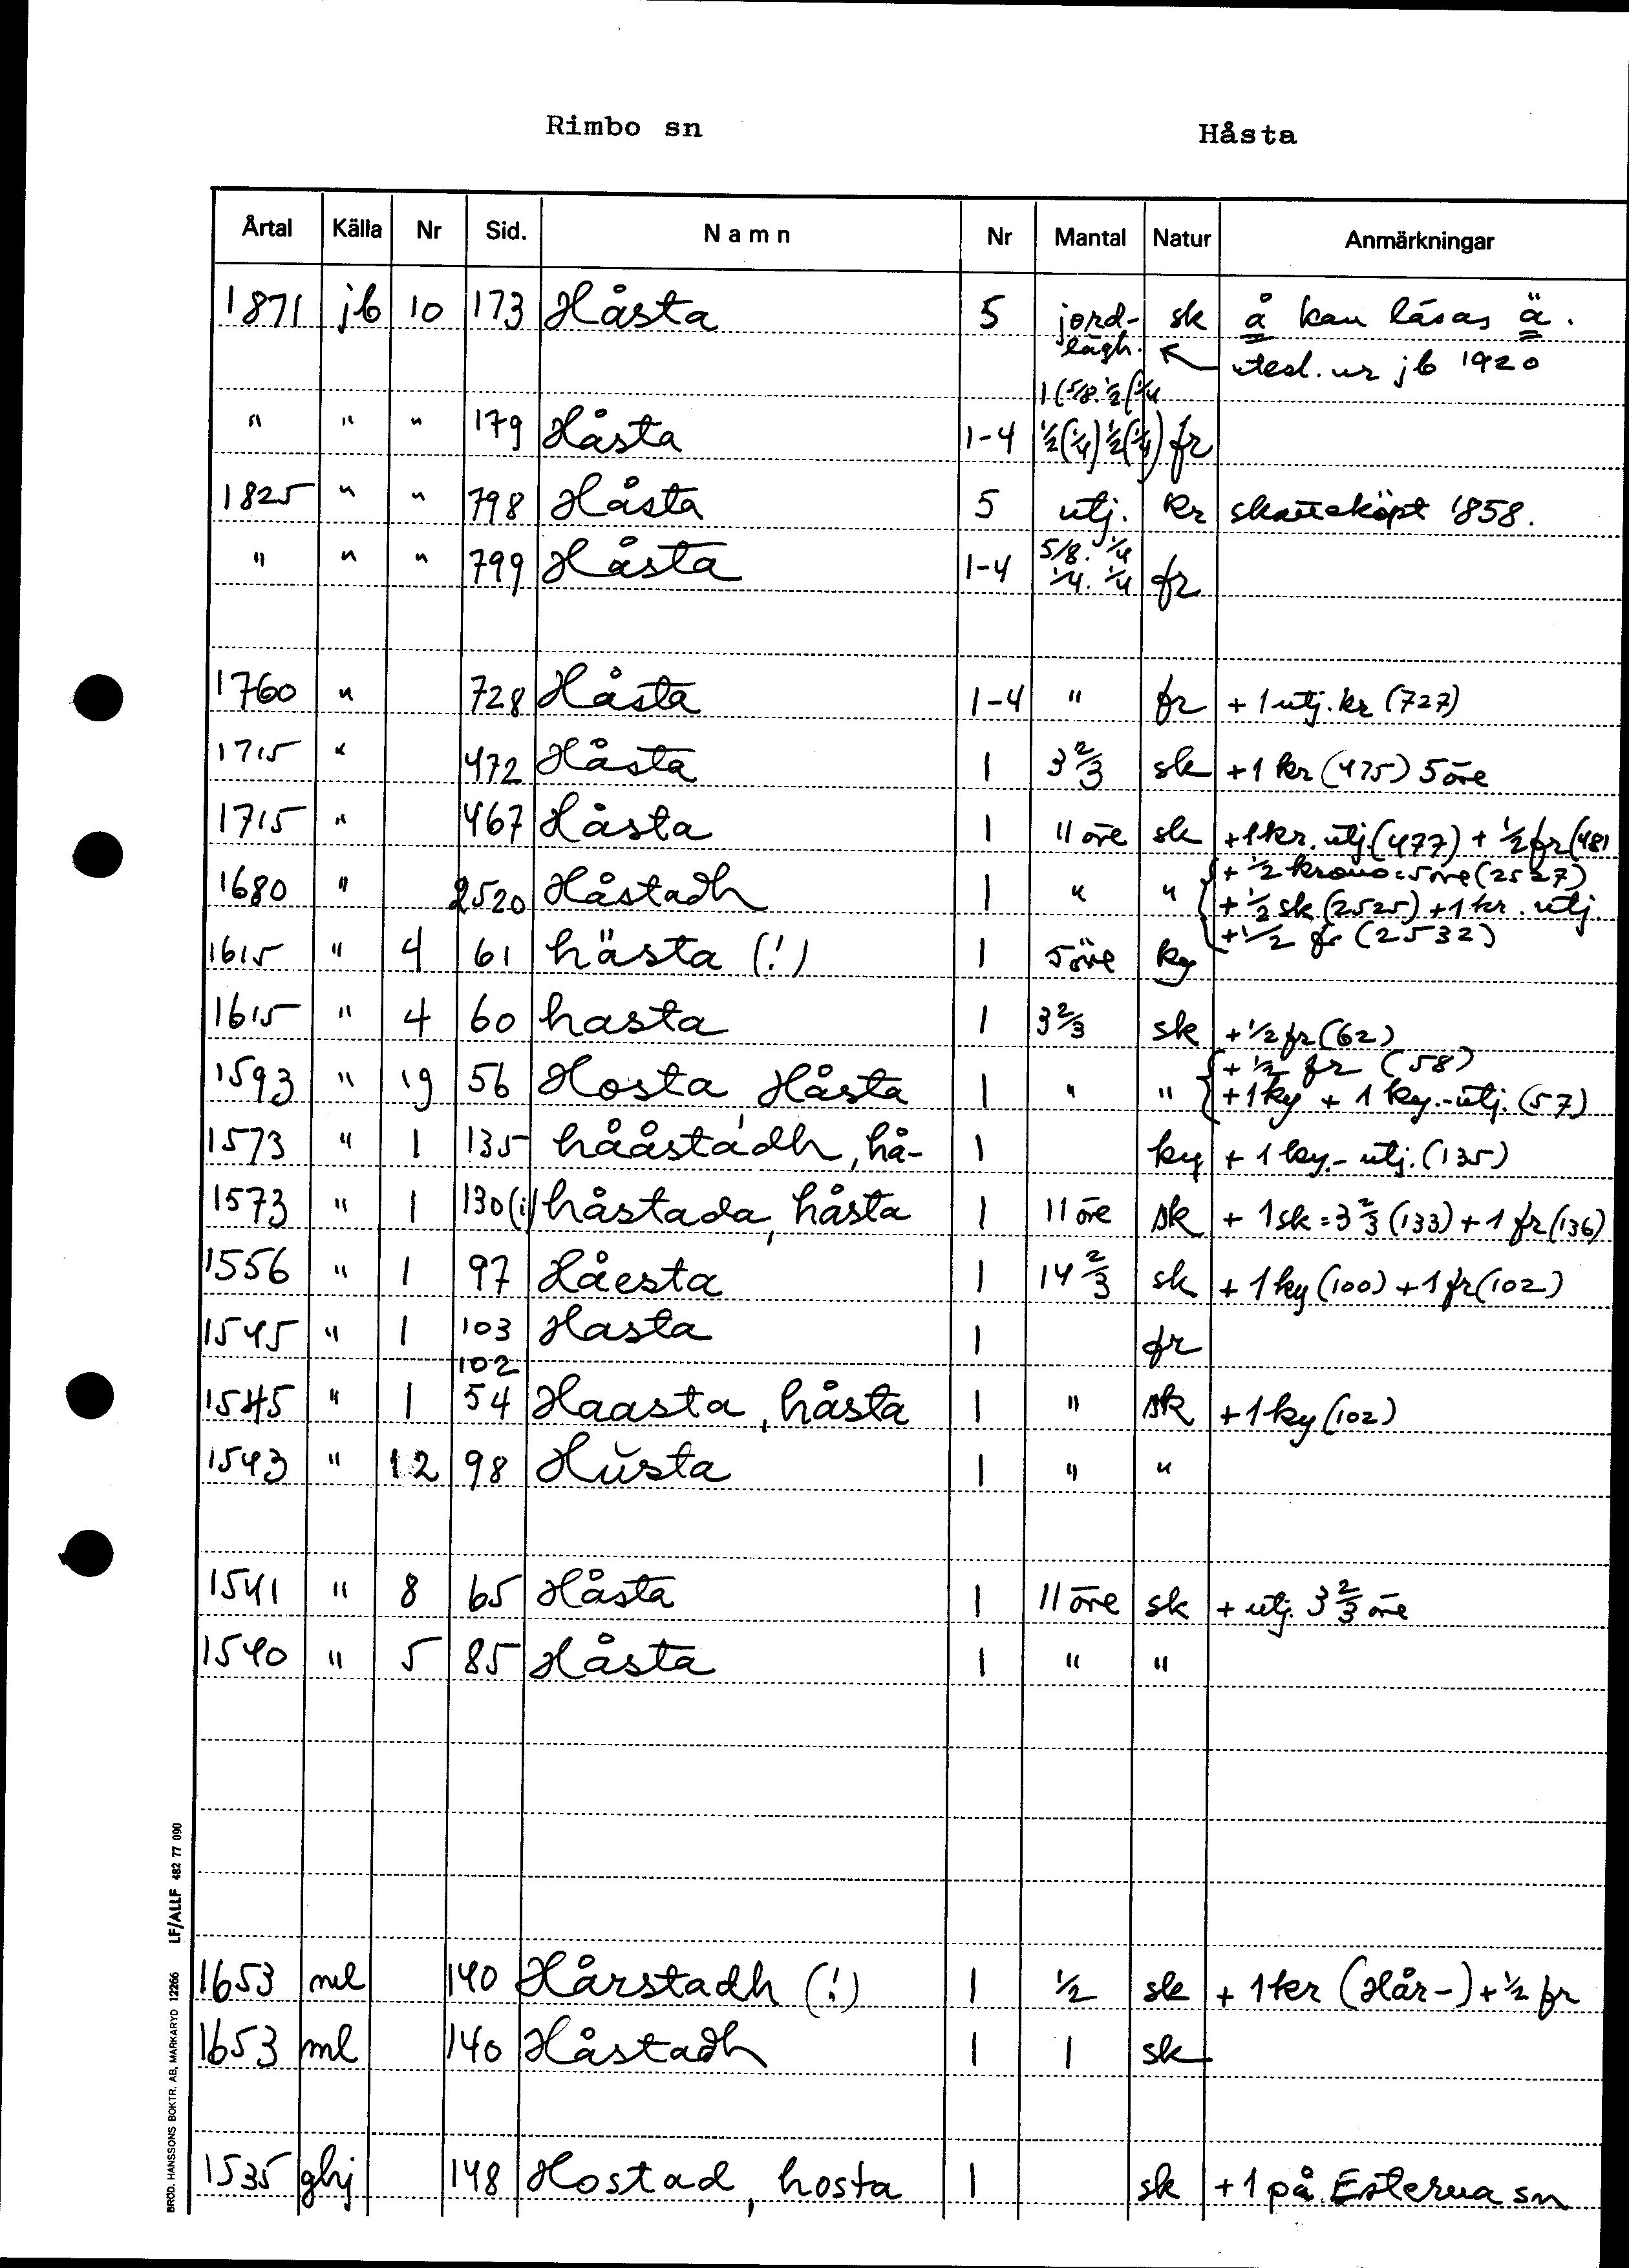 Rimbo sn Håsta
Årtal Källa Nr Sid. Namn Nr Mantal Natur Anmärkningar
1871 jb 10 173 Håsta 5 jord- sk å kan läsas ä.
lägh. utesl. ur jb 1920
1 (5/8. 1/2 (1/4
" " " 179 Håsta 1-4 1/2(1/4) 1/2(1/4) fr
1825 " " 798 Håsta 5 utj. kr skatteköpt 1858.
" " " 799 Håsta 1-4 5/8. 1/4 1/4. 1/4 fr
1760 " 728 Håsta 1-4 " fr + 1 utj. kr (727)
1715 " 472 Håsta 1 3 2/3 sk + 1 kr (475) 5 öre
1715 " 467 Håsta 1 11 öre sk + 1 kr. utj. (477) + 1/2 fr (481
1680 " 2520 Håstadh 1 " " + 1/2 krono = 5 öre (2527)
+ 1/2 sk (2525) + 1 kr. utj.
+ 1/2 fr (2532)
1615 " 4 61 hästa (!) 1 5 öre ky
1615 " 4 60 hasta 1 3 2/3 sk + 1/2 fr (62)
1593 " 19 56 Hosta, Håsta 1 " " + 1/2 fr (58)
+ 1 ky + 1 ky.-utj. (57)
1573 " 1 135 hååstadh, hå- 1 ky + 1 ky.-utj. (135)
1573 " 1 130(i) håstada, håsta 1 11 öre sk + 1 sk = 3 2/3 (133) + 1 fr (136)
1556 " 1 97 Håesta 1 14 2/3 sk + 1 ky (100) + 1 fr (102)
1545 " 1 103 Hasta 1 fr
102
1545 " 1 54 Haasta, håsta 1 " sk + 1 ky (102)
1543 " 12 98 Hŭsta 1 " "
1541 " 8 65 Håsta 1 11 öre sk + utj. 3 2/3 öre
1540 " 5 85 Håsta 1 " "
1653 ml 140 Hårstadh (!) 1 1/2 sk + 1 kr (Hår-) + 1/2 fr
1653 ml 140 Håstadh 1 1 sk
1535 ghj 148 Hostad, hosta 1 sk + 1 på Esterna sn
BRÖD. HANSSONS BOKTR. AB, MARKARYD 12266 LF/ALLF 482 77 090